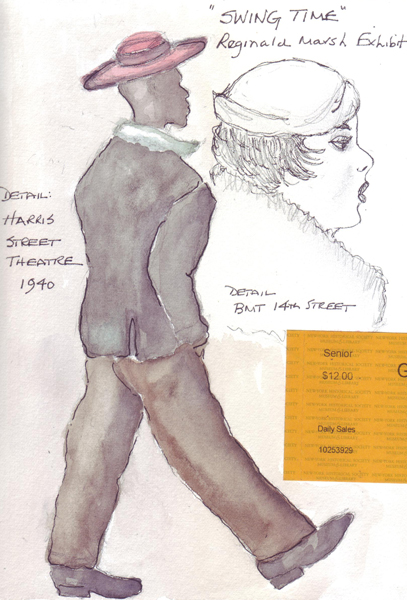 "SWING TIME"
Reginald Marsh Exhibit
DETAIL:
HARRIS
STREET
THEATRE
1940
DETAIL
BMT 14TH STREET
Senior
$12.00
G
Daily Sales
10253929